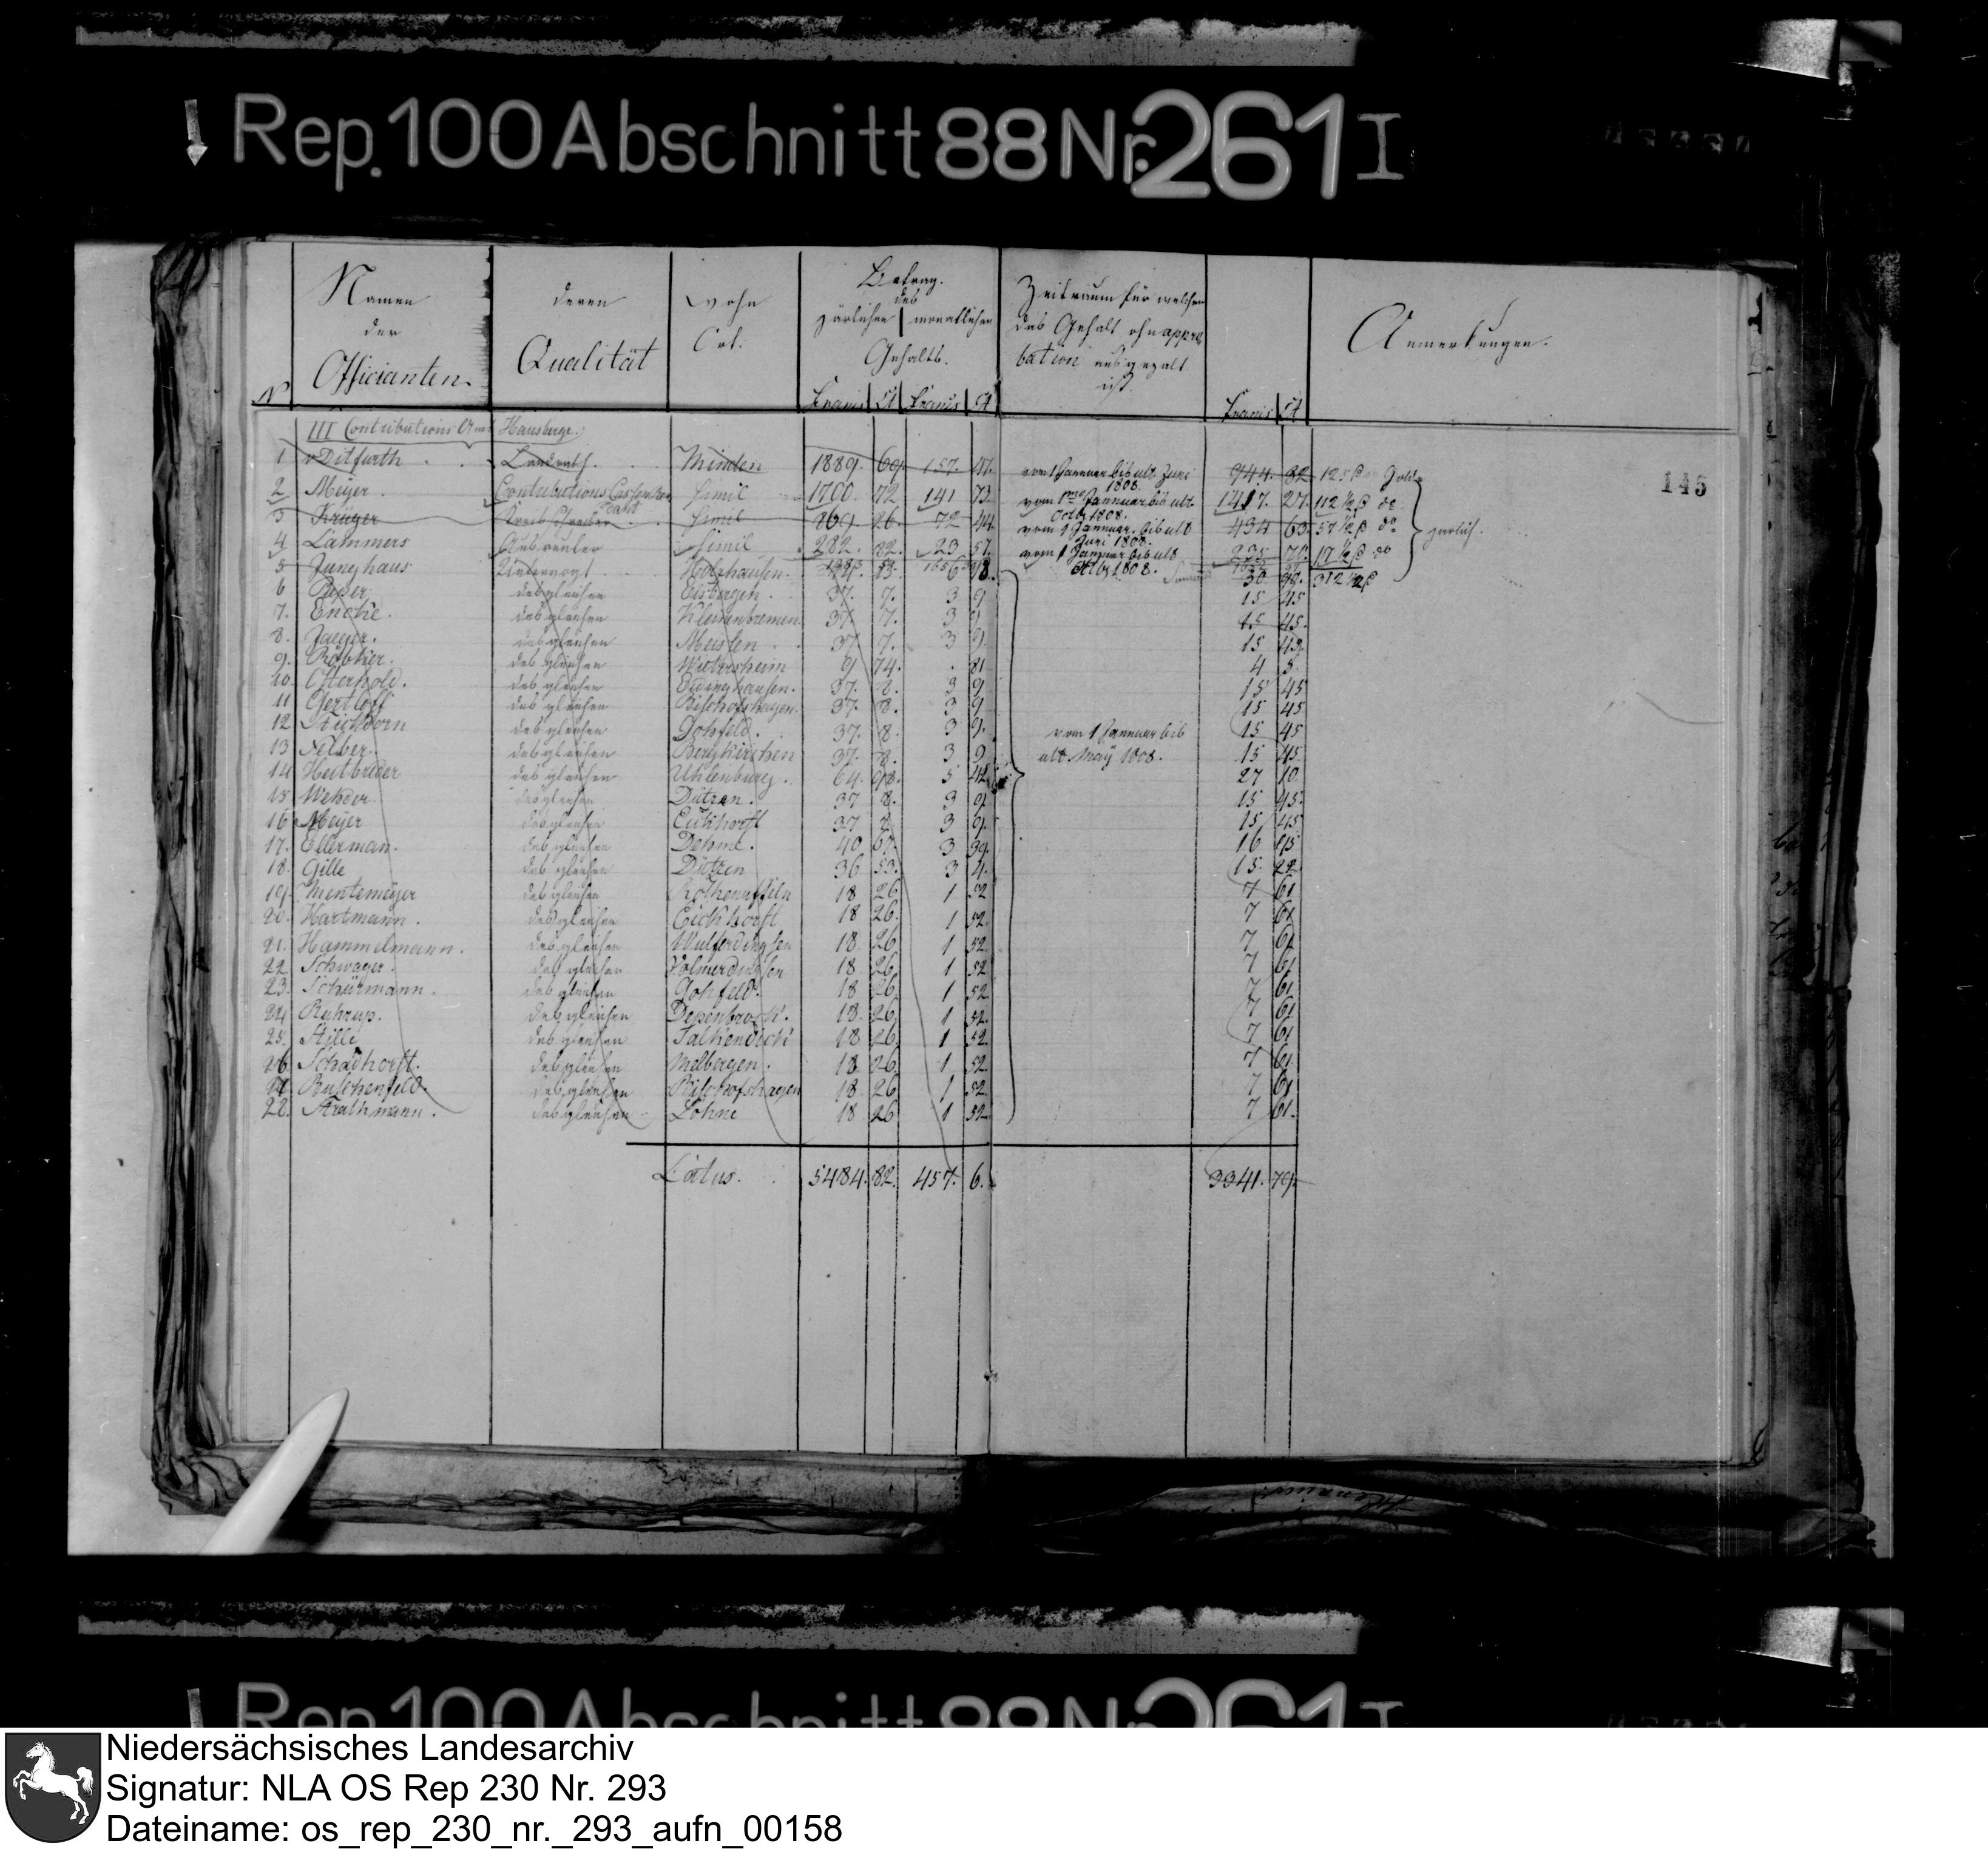 Rep. 100 Abschnitt 88 Nr. 261 I
145
N
Namen
der
Officianten.
deren
Qualität
Wohn
Ort.
Betrag
des
järlichen | monatlichen
Gehalts.
Francs | Ct | Francs | Ct
Zeitraum für welchen
das Gehalt ohn appro
bation ausgezalt
ist.
Francs | Ct
Anmerkungen.
III Contributions Amt Hausberge.
1 v Ditfurth Landrath. Minden 1889. 69. 157. 47. vom 1 Januar bis ult Juni 1808. 944. 82 125 Gold
2 Meyer Contributions Cassen simil 1700. 72 141 73. vom Januar bis ult Octbr 1808. 1417. 27. 112 1/2 do
3 Krüger simil 869. 26. 72 44 vom 1 Januar bis ult Juni 1808. 434 63. 57 1/2 do
4 Lammers Ausreuter simil 282. 82. 23 57. vom 1 Januar bis ult Octbr 1808. 235 17 1/2 do
järlich.
5 Junghaus Untervogt Holzhausen. 30 312 1/2
6 Piper desgleichen Eisbergen. 37. 7. 3 9 15 45
7. Encke desgleichen Kleinenbremen 37. 7. 3 9 15 45.
8. Jaeger. desgleichen Meisten 37 7. 3 9. 15 45
9. desgleichen Wietersheim 9 74. . 81 4 5
10. Osterhold. desgleichen Edinghausen. 37. 8. 3 9 15 45
11 Gerloff desgleichen Bischofshagen. 37. 8. 3 9 15 45
12 Stickdorn desgleichen Gohfeld. 37. 8. 3 9. 15 45
13 desgleichen Bergkirchen 37. 8. 3 9 15 45
vom 1 Januar bis
ult May 1808.
14 Heitbreder desgleichen Uhlenburg. 64. 98. 5 42 27 10
15 desgleichen Dützen. 37 8. 3 9 15 45.
16 Meyer desgleichen Eickhorst 37 8 3 9. 15 45
17. Ellerman. desgleichen Dehme. 40 67. 3 39. 16 95
18. Gille desgleichen Dützen 36 53. 3 4. 15. 22.
19. Mentemeyer desgleichen Rothenuffeln 18 26 1 52 7 61
20. Hartmann. desgleichen Eickhorst 18 26. 1 52. 7 61
21. Hammelmann. desgleichen Wulferdingsen 18. 26 1 52. 7 61
22 Schwager. desgleichen Volmerdingsen 18 26 1 52 7 61
23. Schürmann. desgleichen Gohfeld. 18 26 1 52 7 61
24 Ruhrup. desgleichen Depenbrock. 18. 26 1 52. 7 61
25. Stille desgleichen Falkendick 18 26 1 52 7 61
26. Schadhorst. desgleichen Melbergen. 18 26. 1 52. 7 61
27 Buschenfeld. desgleichen Bischofshagen 18 26 1 52. 7 61
28. Strathmann. desgleichen Löhne 18 26 1 52 7 61.
Latus. 5484. 82. 457. 6. 3341. 79.
Rep. 100 Abschnitt 88 Nr. 261 I
Niedersächsisches Landesarchiv
Signatur: NLA OS Rep 230 Nr. 293
Dateiname: os_rep_230_nr._293_aufn_00158